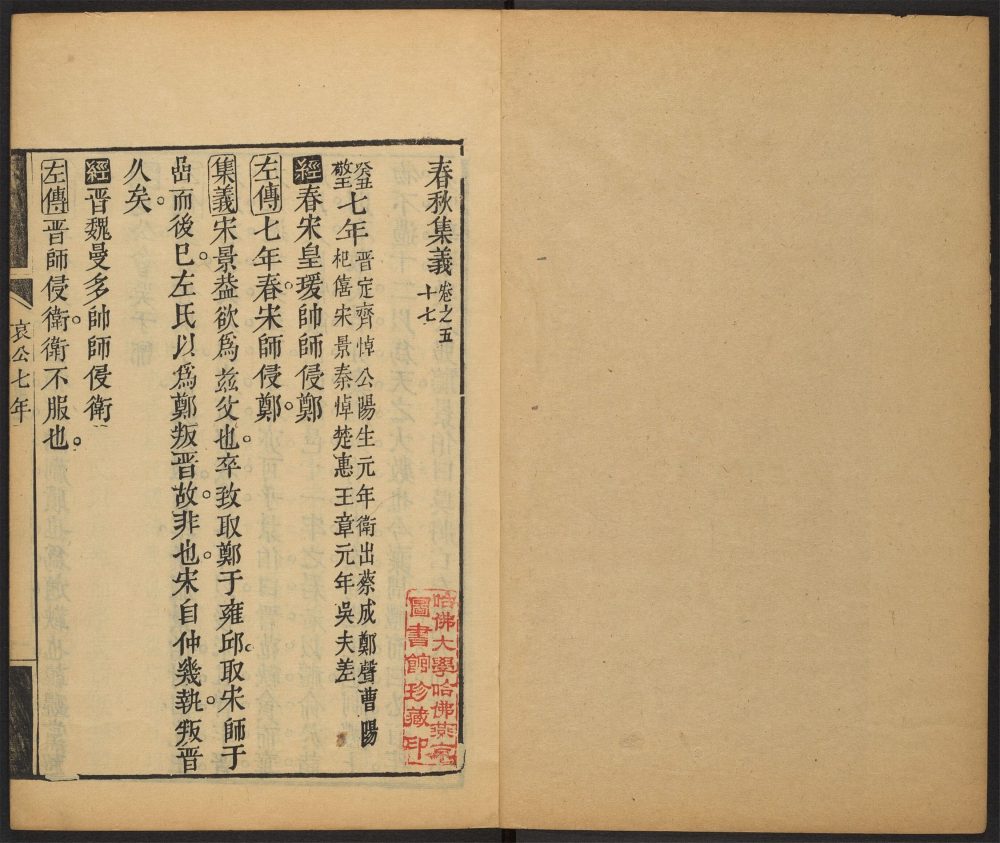 春秋集義卷之五十七
癸丑敬王七年晉定齊悼公陽生元年衛出蔡成鄭聲曹陽杞僖宋景秦悼楚惠王章元年吳夫差
經春宋皇瑗帥師侵鄭
左傳七年春宋師侵鄭。
集義宋景葢欲爲玆父也。卒致取鄭于雍邱。取宋師于
嵒而後巳。左氏以爲鄭叛晋故。非也。宋自仲幾執。叛晋
久矣。
經晋魏曼多帥師侵衛
左傳晋師侵衛。衛不服也。
哀公七年
哈佛大學哈佛燕京
圖書館珍藏印